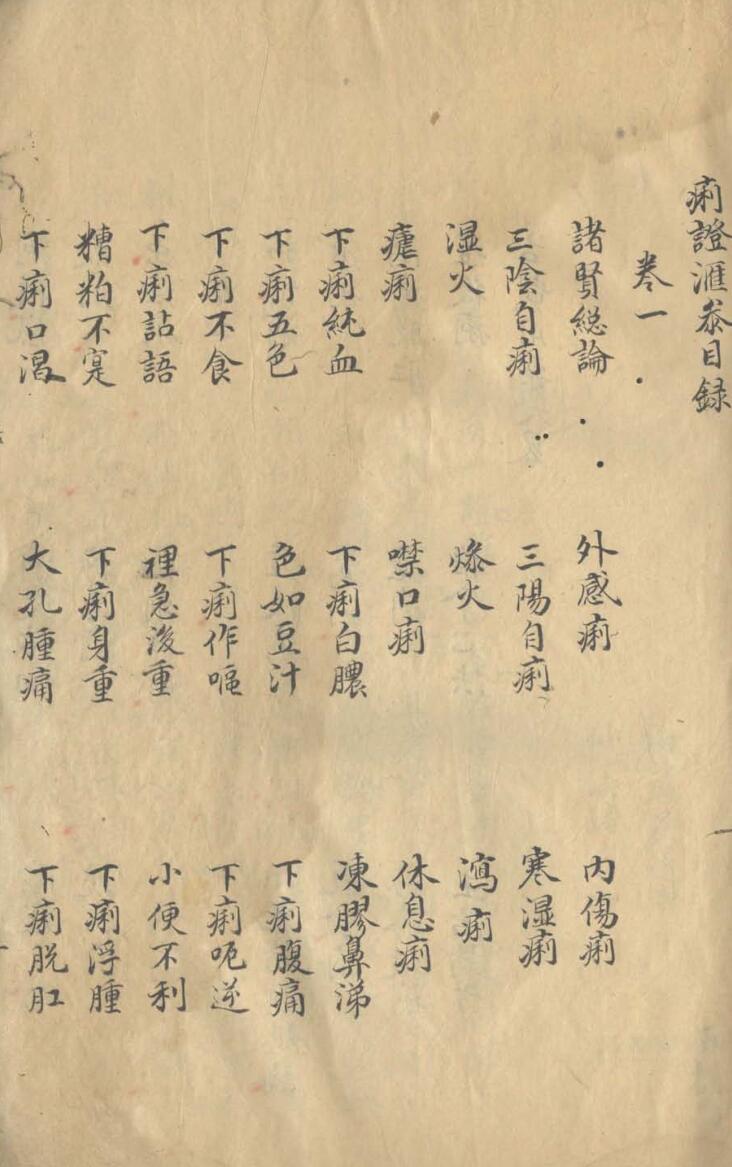 痢證滙叅目録
卷一
諸賢総論 外感痢 內傷痢
三陰自痢 三陽自痢 寒湿痢
湿火 燥火 瀉痢
瘧痢 噤口痢 休息痢
下痢純血 下痢白膿 凍膠鼻涕
下痢五色 色如豆汁 下痢腹痛
下痢不食 下痢作嘔 下痢呃逆
下痢詀語 裡急後重 小便不利
糟粕不寔 下痢身重 下痢浮腫
下痢口渴 大孔腫痛 下痢脱肛